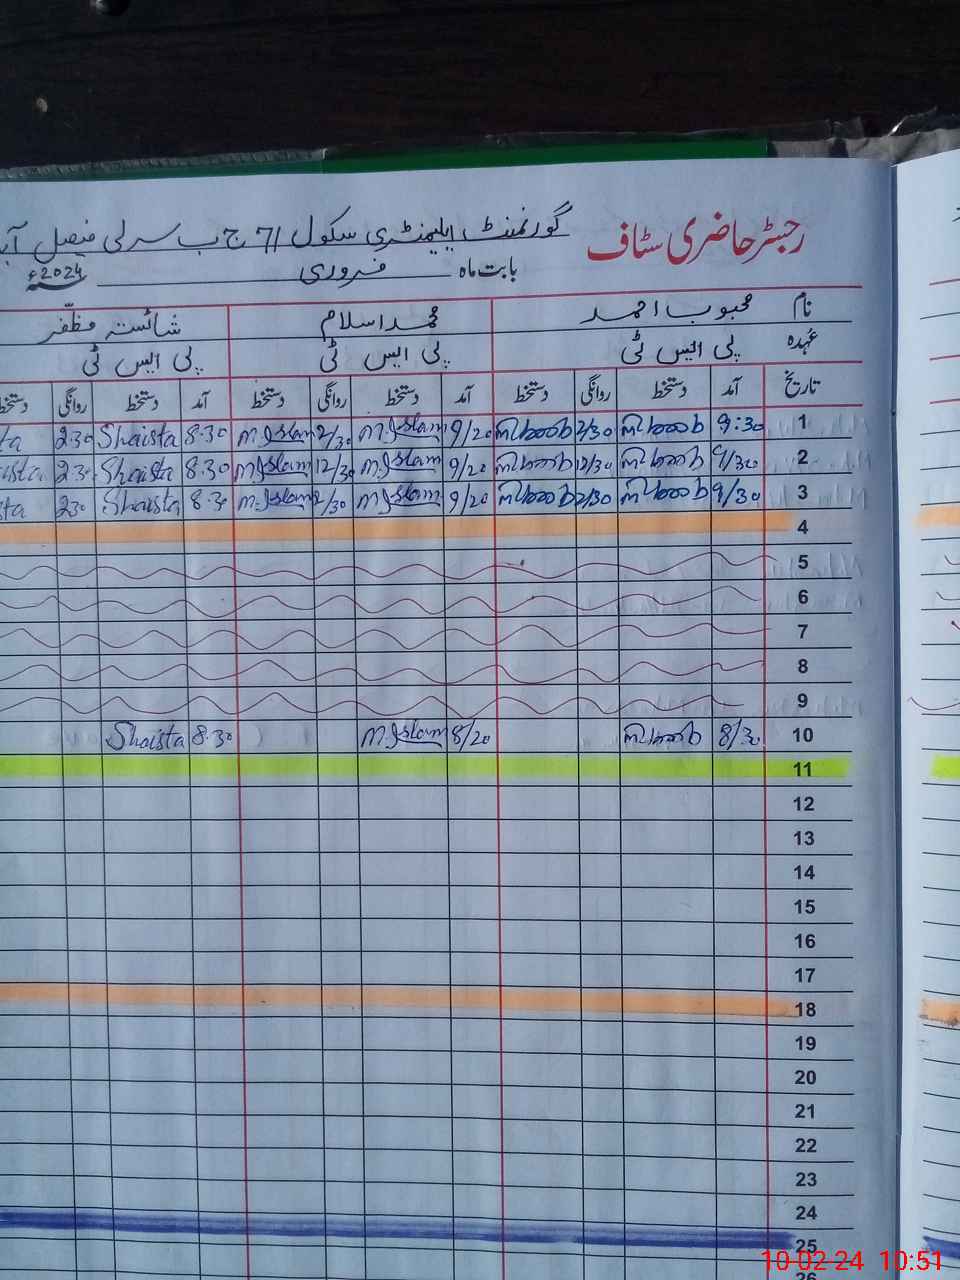 رجسٹر حاضری سٹاف گورنمنٹ ایلیمنٹری سکول 71 ج ب سرلی فیصل آبا
بابت ماہ فروری 2024ء
نام محبوب احمد محمد اسلام شائستہ مظفر
عُہدہ پی ایس ٹی پی ایس ٹی پی ایس ٹی
تاریخ آمد دستخط روانگی دستخط آمد دستخط روانگی دستخط آمد دستخط روانگی دستخط
1 9:30 2/30 9/20 M.Islam 2/30 M.Islam 8.30 Shaista 2.30 ta
2 9/30 12/30 9/20 M.Islam 12/30 M.Islam 8.30 Shaista 2.3 ista
3 9/30 2/30 9/20 M.Islam 2/30 M.Islam 8.30 Shaista 230 sta
4
5
6
7
8
9
10 8/30 8/20 M.Islam 8.30 Shaista
11
12
13
14
15
16
17
18
19
20
21
22
23
24
25
26
10-02-24 10:51